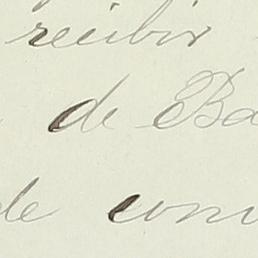 recibir
de Ba
de com